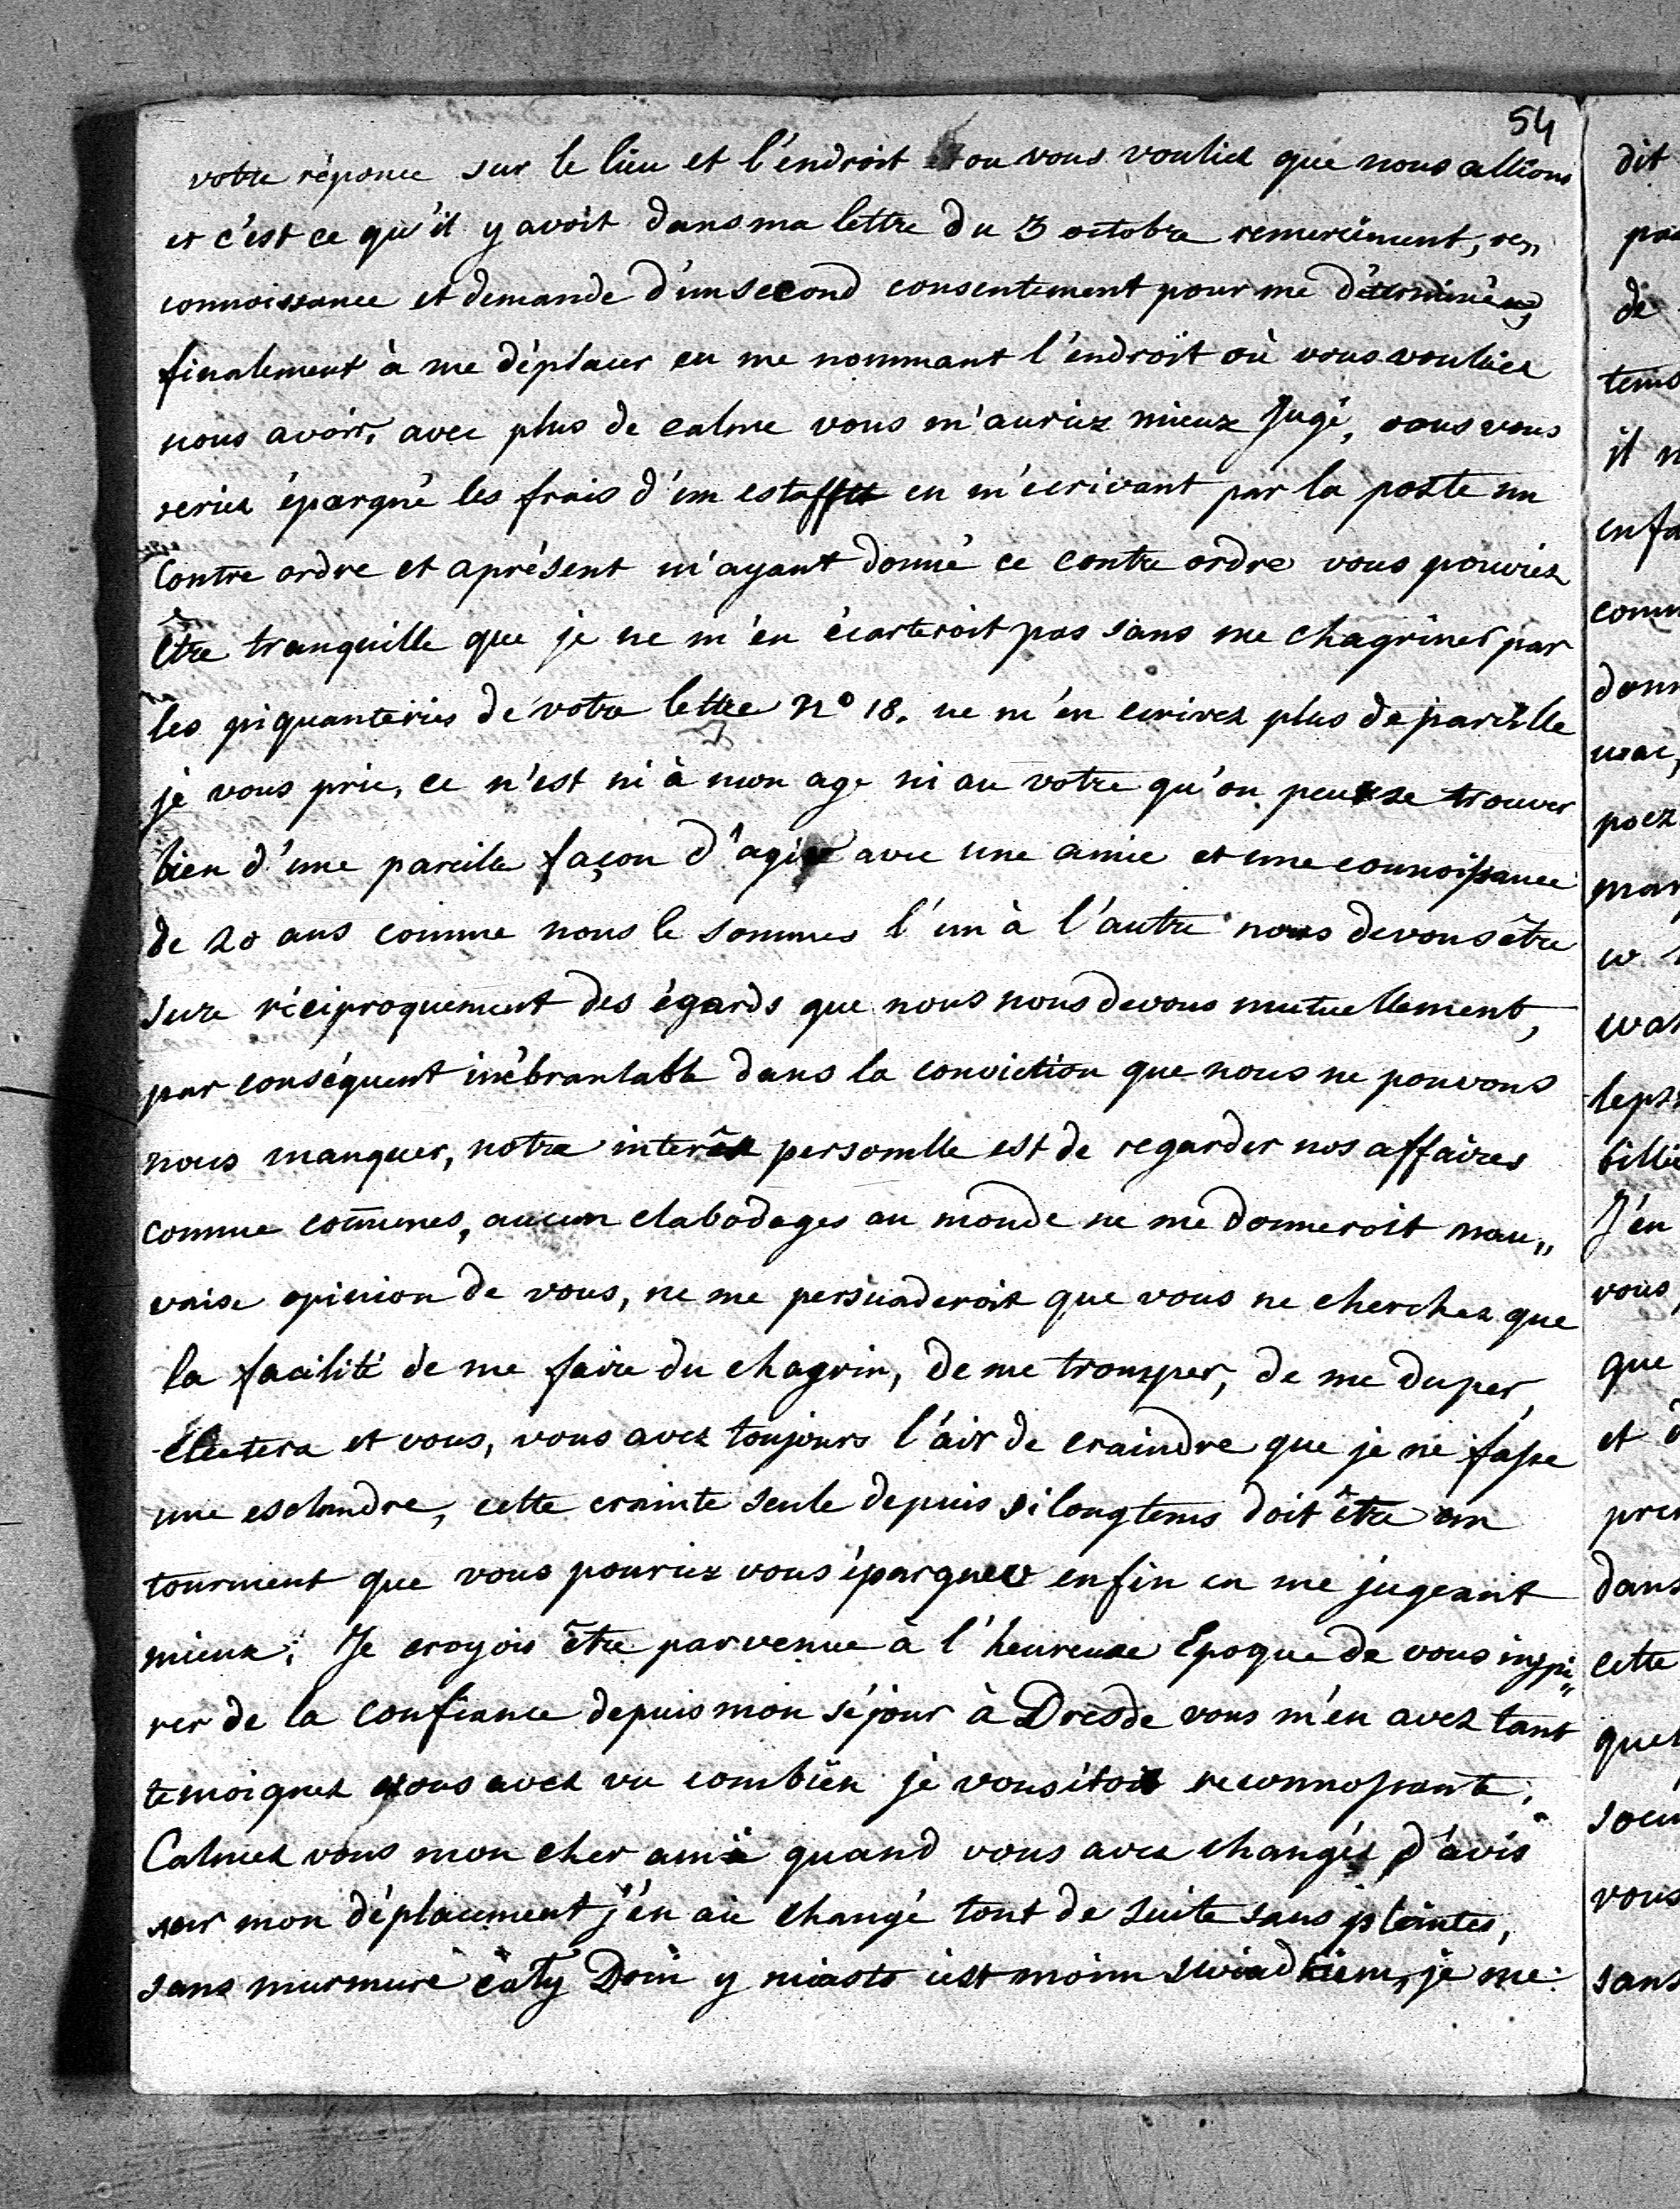 54
votre réponce sur le lieu et l'éndroit ou vous vouliez que nous allions
et c'est ce qu'il y avoit dans ma lettre du 3 octobre remercîment, re„
connoissance et demande d'un second consentement pour me détérminér,
finalement à me déplacer en me nommant l'éndroit où vous vouliez
nous avoir, avec plus de calme vous m'auriez mieux Jugé, vous vous
seriez épargné les frais d'un estaffett en m'ecrivant par la poste un
Contre ordre et aprésent m'ayant donné ce contre ordre vous pouviez
être tranquille que je ne m'en écarteroit pas sans me chagriner par
les piquanteries de votre lettre No 18. ne m'en ecrivez plus de pareille
je vous prie, ce n'est ni à mon age ni au votre qu'on peut se trouver
bien d'une pareille façon d'agir avec une amie et une connoissance
de 20 ans comme nous le sommes l'un à l'autre nous devons être
sure réciproquement des égards que nous nous devons mutuellement,
par conséquent inébranlable dans la conviction que nous ne pouvons
nous manquer, notre interêt personelle est de regarder nos affaires
comme comunes, aucun clabodages au monde ne me donneroit mau„
vaise opinion de vous, ne me persuaderoit que vous ne cherchez que
la facilité de me faire du chagrin, de me tromper, de me duper,
etcetera et vous, vous avez toujours l'air de craindre que je ne fasse
une esclandre, cette crainte seule depuis si longtems doit être un
tourment que vous pouriez vous épargner enfin en me jugeant
mieux; Je croyois être parvenue à l'heureuse Epoque de vous inspi„
rer de la confiance depuis mon séjour à Dresde vous m'en avez tant
temoignez vous avez vu combien je vous étois reconnossante,
Calmez vous mon cher ami quand vous avez changés d'avis
sur mon déplacement j'én ai changé tout de suite sans pleintes,
sans murmure caty Dom y miasto iest moim swiadkiem, je me
dit
de
tems
il
cette
vous
que
et
dans
vous
sans